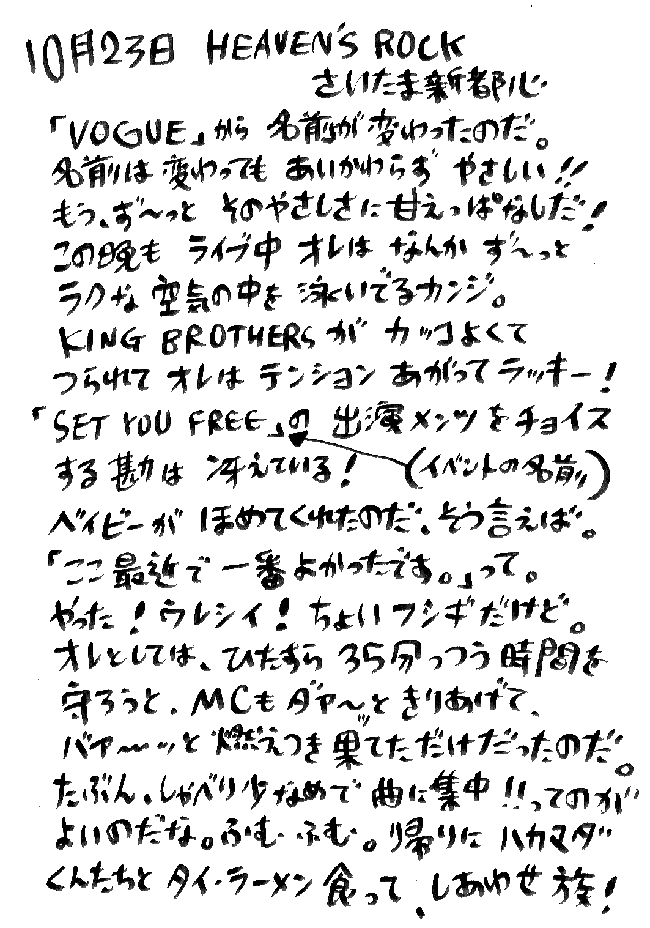 10月23日 HEAVEN'S ROCK
さいたま新都心
「VOGUE」から 名前が変わったのだ。
名前は変わっても あいかわらず やさしい!!
もう、ず〜っと そのやさしさに甘えっぱなしだ!
この晩も ライブ中 オレは なんか ず〜っと
ラクな 空気の中を 泳いでるカンジ。
KING BROTHERS が カッコよくて
つられて オレは テンション あがって ラッキー!
「SET YOU FREE」の 出演メンツをチョイス
する勘は 冴えている! (イベントの名前)
ベイビーが ほめてくれたのだ、そう言えば。
「ここ最近で 一番よかったです。」って。
やった!ウレシイ!ちょいフシギだけど。
オレとしては、ひたすら 35分っつう時間を
守ろうと、MCも ダァ〜ッと きりあげて、
バァ〜ッと 燃えつき果てただけだったのだ。
たぶん、しゃべり少なめで 曲に集中!!ってのが
よいのだな。ふむ・ふむ。帰りに ハカマダ
くんたちと タイ・ラーメン食って、しあわせ族!